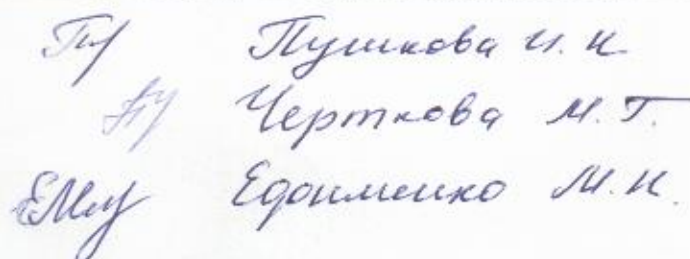 Пушкова И. Н.
Черткова М. Т.
Едоименко М. Н.